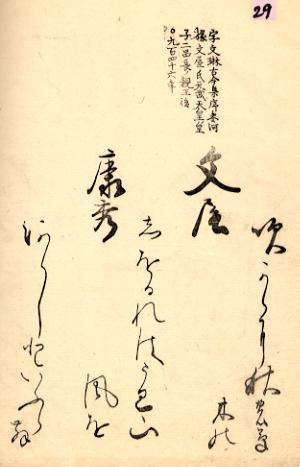 29
字文琳古今集序参河
掾文屋氏天武天皇皇
子二品長親王後
〇九百四十六年
文屋
康秀
吹からに秋の草
木の
しをるれはうへ山
風を
あらしといふらむ